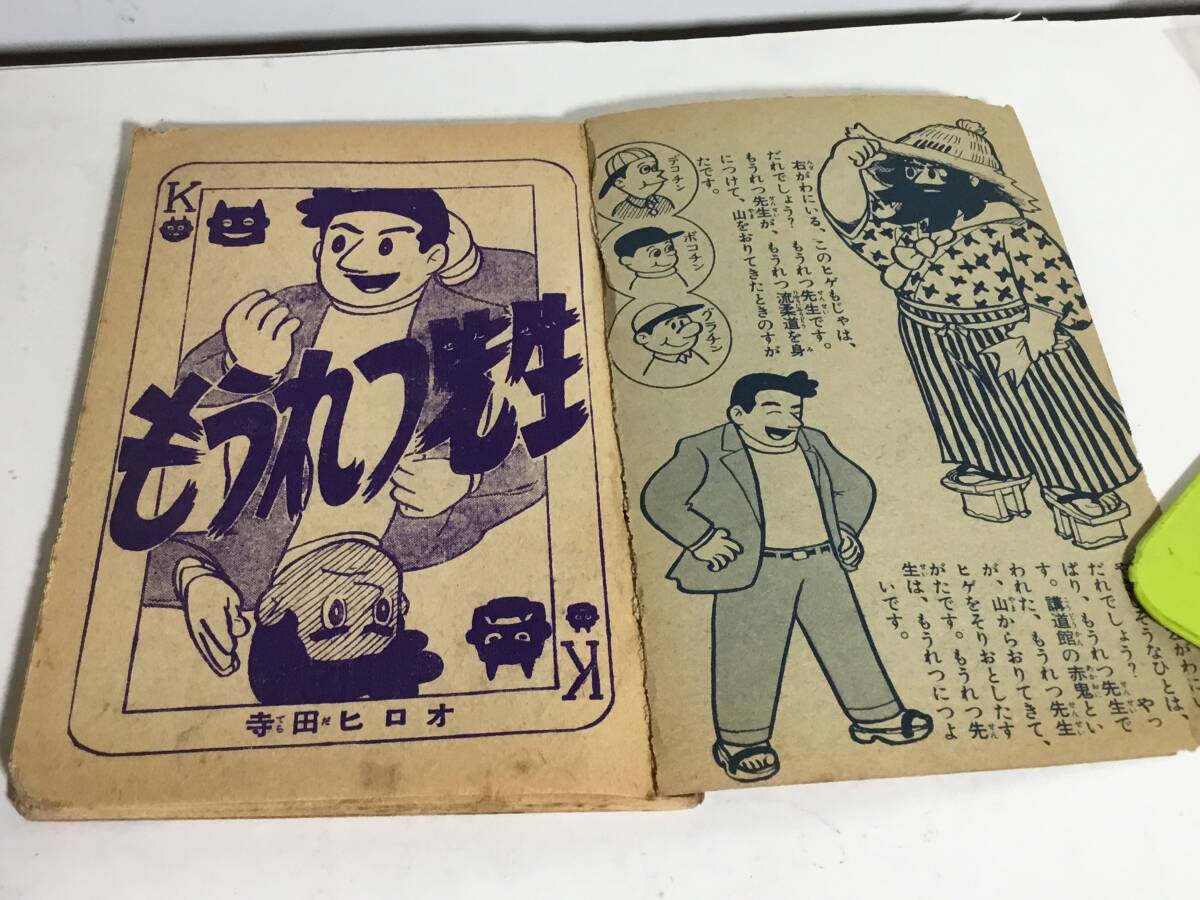 右がわにいる、このヒゲもじゃは、
だれでしょう? もうれつ先生です。
もうれつ先生が、もうれつ流柔道を身
につけて、山をおりてきたときのすが
たです。
デコチン
ボコチン
グラチン
がわにい
そうなひとは、
だれでしょう? やっ
ぱり、もうれつ先生で
す。講道館の赤鬼とい
われた、もうれつ先生
が、山からおりてきて、
ヒゲをそりおとしたす
がたです。もうれつ先
生は、もうれつにつよ
いです。
K
もうれつ先生
K
寺田ヒロオ